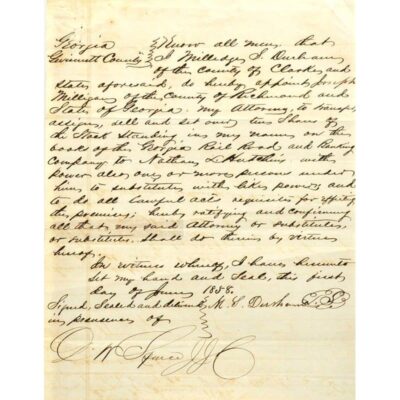 Georgia } Know all men that
Gwinnett County } I Milledge S. Durham
of the County of Clarke and
state aforesaid, do hereby appoint Joseph
Milligan of the County of Richmond and
State of Georgia, my Attorney, to transfer,
assign, sell and set over ten Shares of
the Stock Standing in my name on the
book of the Georgia Rail Road and Banking
Company to Nathan L Hutchins with
power also one or more persons under
him to substitute with like power, and
to do all lawful acts requisite for effecting
the premises; hereby ratifying and confirming
all that my said Attorney or substitute,
or substitutes Shall do therein by virtue
hereof.
In witness whereof, I have hereunto
set my hand and Seal, this first
day of June 1858.
Signed, Sealed and delivered M. S. Durham
in presence of